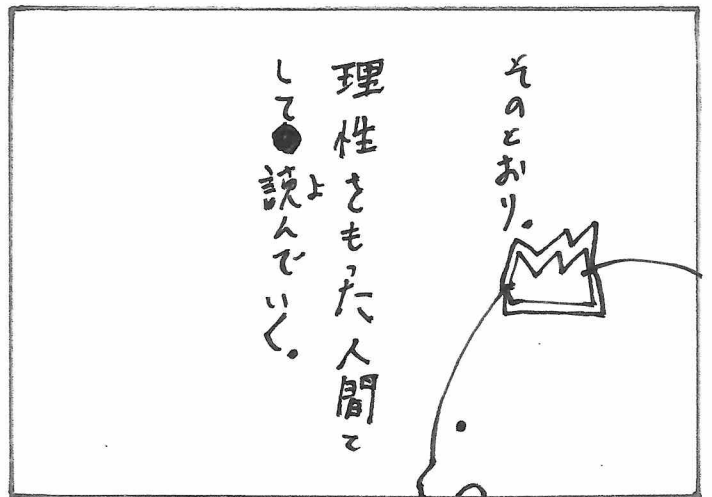 そのとおり。
理性をもった人間と
して読んでいく。
よ